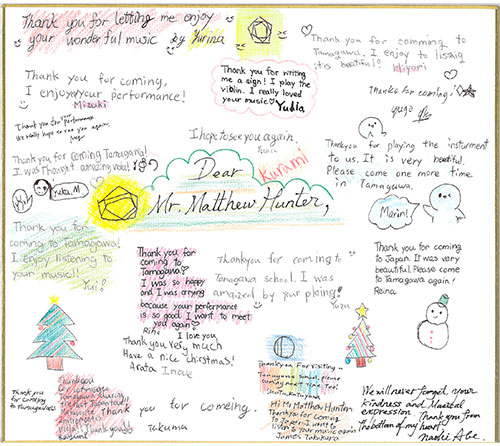 Thank you for letting me enjoy
your wonderful music by Yurina
Thank you for comming to
Tamagawa. I enjoy to
it's beautiful!
Thank you for coming,
I enjoy your performance!
Mizuki
Thank you for writing
me a sign! I play the
violin. I really loved
your music
Yukia
Thanks for coming!
yugo
Thank you for performance.
We really hope to see you again.
I hope to see you again.
Thank you for coming Tamagawa!
I was
Yuka.M
Kurumi
Dear
Mr. Matthew Hunter,
Thankyou for playing the instrument
to us. It is very beautiful.
Please come one more time
in Tamagawa.
Marin!
Thank you for
coming to Tamagawa!
I enjoy listening to
your music!!
Yui
Thank you for
coming to
Tamagawa
I was so happy
and I was crying
because your performance
is so good. I want to meet
you again
Riho
Thankyou for coming to
Tamagawa school. I was
amazed by your
Yuzu
Thank you for coming
to Japan. It was very
beautiful. Please come
to Tamagawa again!
Reina
I love you
Thank you very much
Have a nice christmas!
Arata Inoue
Thank you For visiting
Thank you
for coming
to Tamagawa!
Thank you for comeing.
Takuma
Hi! Mr Matthew Hunter
Thank you for coming
to Japan. I want to
listen to your music again
James
We will never forget your
kindness and Musical
expression. Thank you from
the bottom of my heart.
Naoki Abe.